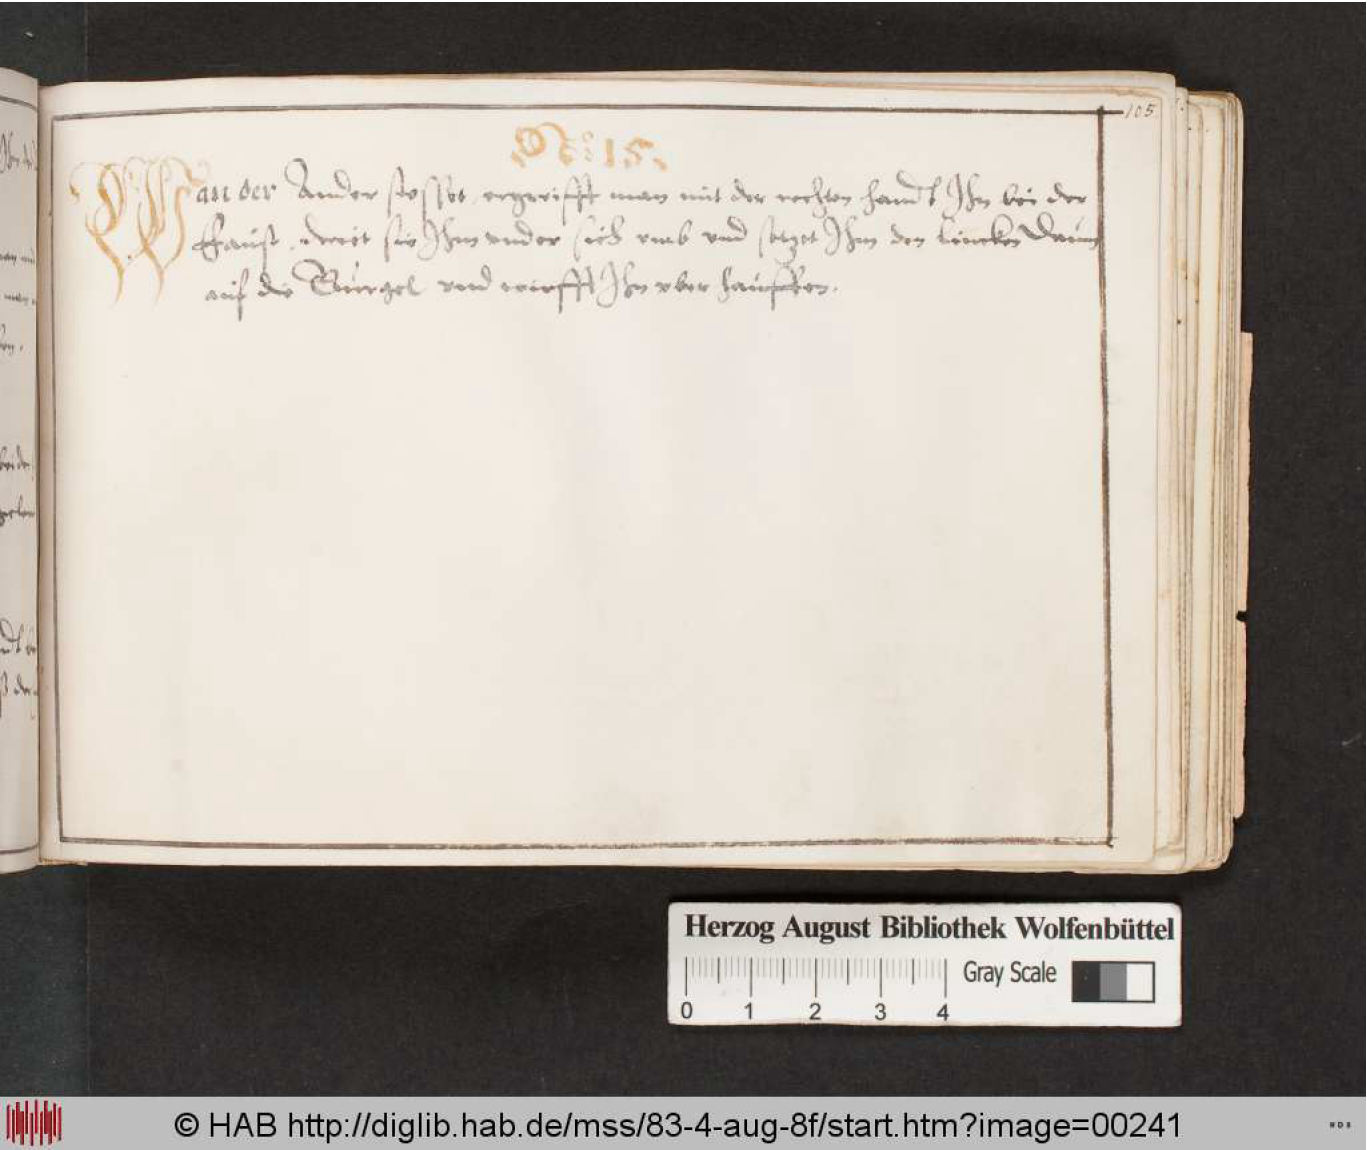 105.
No: 15.
Wan der Ander stosset, ergreifft man mit der rechten handt Ihn bei der
Faust, dreet sie Ihm under sich umb und setzet Ihm den lincken Daum
auf die Gurgel und wirfft Ihn uber hauffen.
Herzog August Bibliothek Wolfenbüttel
Gray Scale
0 1 2 3 4
© HAB http://diglib.hab.de/mss/83-4-aug-8f/start.htm?image=00241